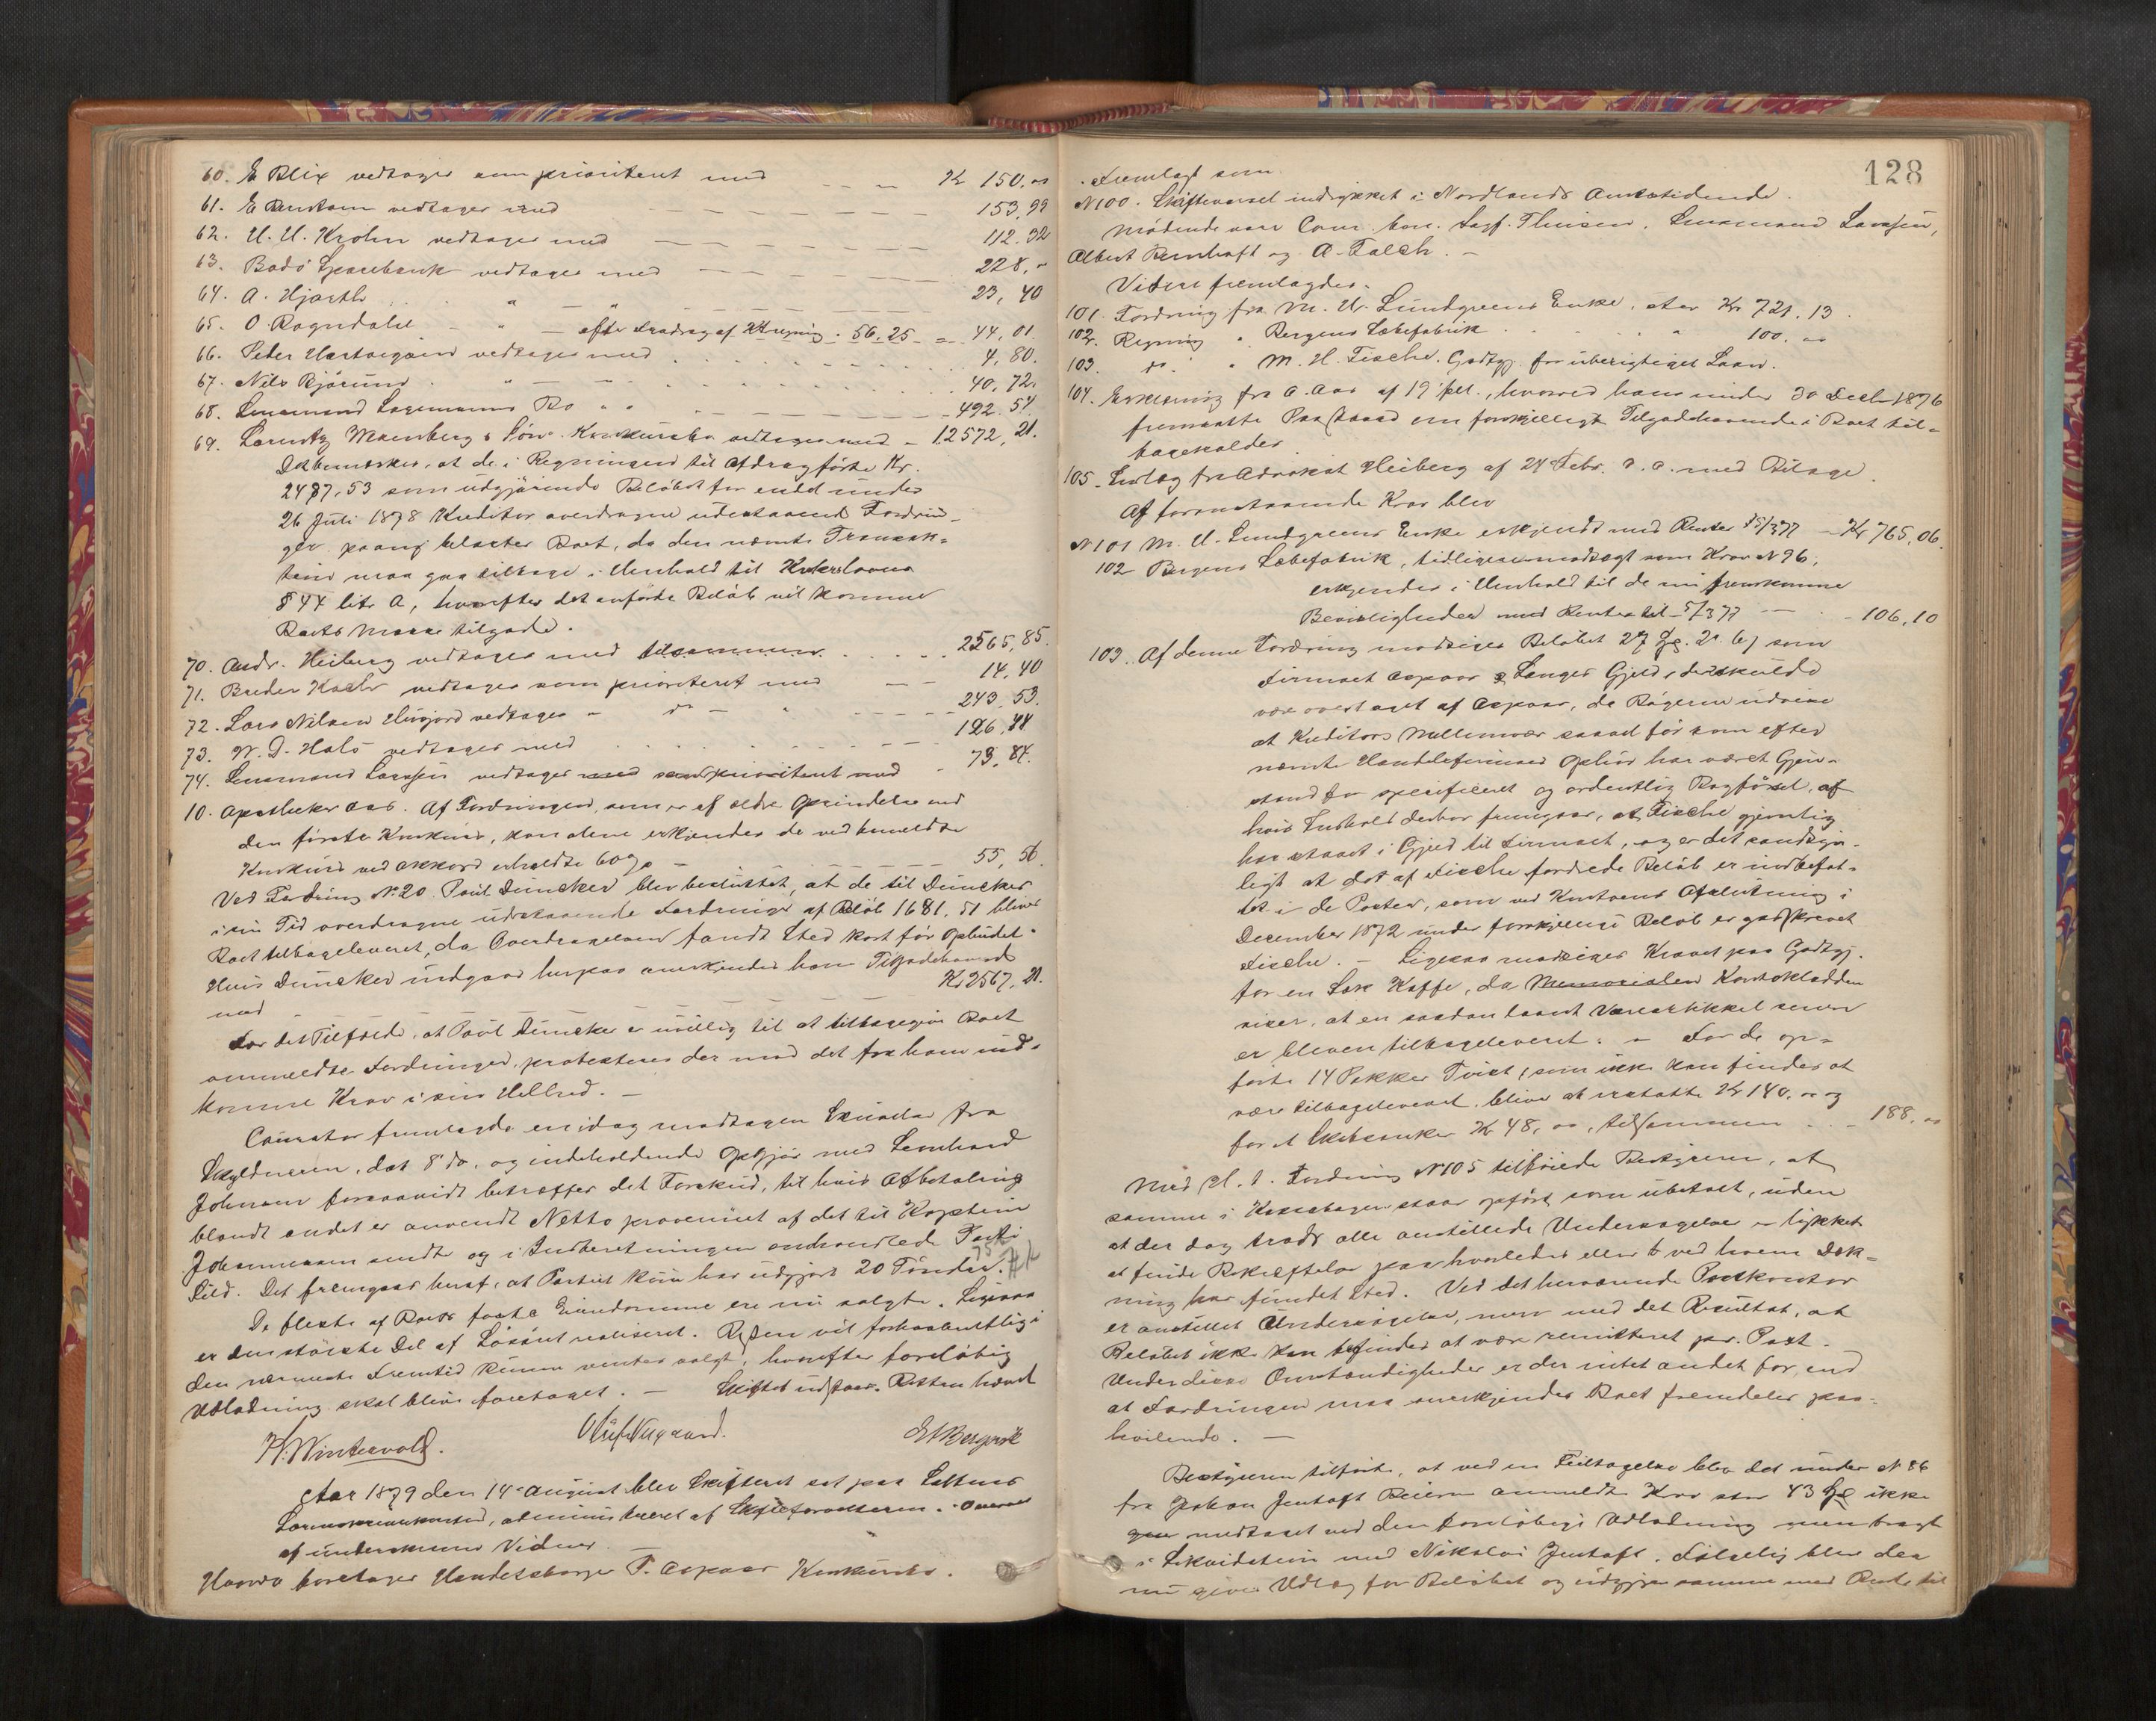 60. E Blix vedtages som prioriteret med Kr 150,00
61. E vedtages med 153,99
62. U. U. Krohn vedtages med 112.32
63. Bodø Sparebank vedtages med 228,"
64. A. Hjorth " — " 23,40
65. O. Rogndahl " — efter Fradrag af 56.25 = 44,01.
66. Peder vedtages med 4,80.
67. Nils " — 40,72.
68. Lensmand Lagemanns Bo " " 492.54
69. Lorentz & Søns Konkursbo vedtages med 12572,21.
Det bemærkes, at de i Regningen til Afdrag førte Kr.
2487,53 som udgjørende Beløbet for endel under
26 Juli 1878 Kreditor overdragne udestaaende Fordrin-
ger paany belaster Boet, da den nævnte Transak-
tion maa gaa tilbage i Henhold til
§ 44 litr A, hvorefter det anførte Beløb vil komme
Boets Masse tilgode.
70. Andr. Heiberg vedtages med tilsammen 2565,85.
71. Breder Koch vedtages som prioriteret med 14,40
72. Lars Nilsen vedtages " do — " 243,53.
73. W. D. Hals vedtages med 126,44
74. Lensmand Larssen vedtages med som prioriteret med 73,84.
10. Apotheker Aas. Af Fordringen, som er af ældre Oprindelse end
den første Konkurs, kan alene erkjendes de ved bemeldte
Konkurs ved Akkord erholdte 60% 55,56.
Ved Fordring No 20 Paul Duncker blev besluttet, at de til Duncker
i sin Tid overdragne udestaaende Fordringer af Beløb 1681,51 bliver
Boet tilbageleveret, da Overdragelsen fandt Sted kort før Opbudet.
Hvis Duncker indgaar herpaa anerkjendes hans Tilgodehavende
med Kr 2567,21.
For det Tilfælde, at Paul Duncker er uvillig til at tilbagegive Boet
ommeldte Fordringer, protesteres der mod det fra ham ind-
komne Krav i sin Helhed. —
Curator fremlagde en idag modtagen Skrivelse fra
Skyldneren, dat 8' ds, og indeholdende Opgjør med Lernhard
Johnsen forsaavidt betræffer det Forskud, til hvis Afbetaling
blandt andet er anvendt Netto provenuet af det til Kaptein
Johannessen sendte og i Indberetningen omhandlede Parti
Sild. Det fremgaar heraf, at Partiet kun har udgjort 20 Tønder.
De fleste af Boets faste Eiendomme ere nu solgte. Ligesaa
er den største Del af Løsøret realiseret. Resten vil forhaabentlig i
den nærmeste Fremtid kunne ventes solgt, hvorefter foreløbig
Udlodning skal blive foretaget. — Skiftet udsat. Retten hævet
H. Wintervold. Oluf Aagaard.
Aar 1879 den 14' August blev Skifteret sat paa Saltens
Sorenskriverkontor, administreret af Skifteforvalteren.
af underskrevne Vidner. —
Hvorda foretages Handelsborger T. Aspaas Konkursbo.
128
Fremlagt som
No 100. Skiftevarsel indrykket i Nordlands Amtstidende.
Mødende vare Cons. Sagf. Lensmand Larssen,
Albert og A. Falch. —
Videre fremlagdes.
101. Fordring fra M. U. Lundgreens Enke, stor Kr 721.13.
102. Regning " Bergens Sæbefabrik " 100.00
103. do. " M. H. Fische. Godtgj. for uberigtiget Laan.
104. Erklæring fra O. Aas af 19' , hvorved hans under 30 Decbr 1876
fremsatte Paastand om forskjelligt Tilgodehavende i Boet til-
bagekaldes.
105. Indlæg fra Advokat Heiberg af 24 Febr. d. a. med Bilage.
Af foranstaaende Krav blev
No 101 M. U. Lundgreens Enke erkjendt med Renter 15/3 77 — Kr 765,06.
102 Bergens Sæbefabrik, tidligere modsagt som Krav No 96;
erkjendes i Henhold til de nu fremkomne
Bevisligheder med Renter til 5/3 77 — 106,10
103. Af denne Fordring modsiges Beløbet 27 som
Firmaet Aspaas & Langes Gjeld, der skulde
være overtaget af Aspaas, da Bøgerne udvise
at Kreditors Mellemvær saavel før som efter
nævnte Handelsfirmas Ophør har været Gjen-
stand for specificeret og ordentlig Bogførsel, af
hvis Indhold derhos fremgaar, at Fische gjentlig
har staaet i Gjeld til Firmaet, og er det sandsyn-
ligt at det af Fische fordrede Beløb er indbefat-
tet i de Poster, som ved Kontoens Afslutning i
December 1872 under forskjellige Beløb er godskrevet
Fische. — Ligesaa modsiges Kravet paa Godtgj.
for en Sæk Kaffe, da Memorialen Kontokladden
viser, at en saadan laant Vareartikkel senere
er bleven tilbageleveret. — For de op-
førte 14 Pakker Tvist, som ikke kan findes at
være tilbageleveret, bliver at erstatte Kr 140.00 og
for et Skibsanker Kr 48,00, tilsammen 188,00
Med H. t. Fordring No 105 tilføiede Bestyreren, at
samme i Kassabogen staar opført som ubetalt, uden
at der dog trods alle anstillede Undersøgelser er lykket
at finde Bekræftelse paa hvorledes eller ved hvem Dæk-
ning har fundet Sted. Ved det herværende Postkontor
er anstillet Undersøgelse, men med det Resultat, at
Beløbet ikke kan befindes at være remitteret pr. Post.
Under disse Omstændigheder er der intet andet for, end
at Fordringen maa anerkjendes Boet fremdeles paa-
hvilende. —
Bestyreren tilførte, at ved en Feiltagelse blev det under No 86
fra Johan Jentoft Beiern anmeldte Krav stor 43 ikke
medtaget ved den foreløbige Udlodning men bragt
i Likvidation med Nikolai Jentoft. Følgelig blev der
nu given Udlæg for Beløbet og udgjør samme med Rente til